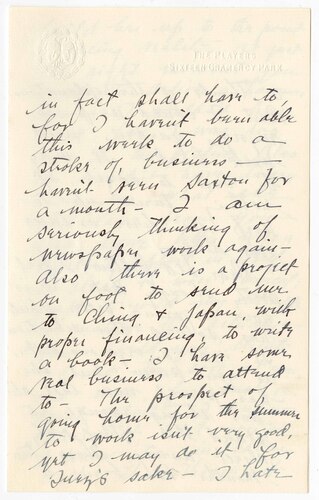 THE PLAYERS
SIXTEEN GRAMERCY PARK
in fact shall have to,
for I haven't been able
this week to do a
stroke of business —
haven't seen Saxton for
a month — I am
seriously thinking of
newspaper work again —
Also there is a project
on foot to send me
to China & Japan, with
proper financing, to write
a book — I have some
real business to attend
to — The prospect of
going home for the summer
to work isn't very good,
yet I may do it for
sake — I hate